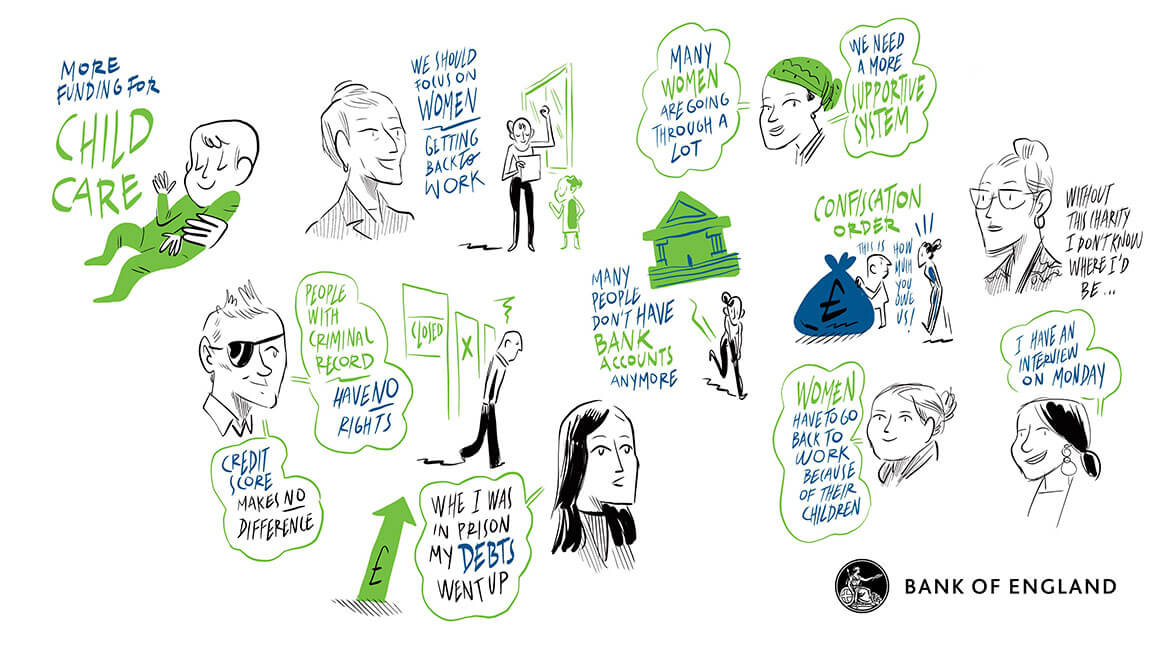 MORE
FUNDING FOR
CHILD
CARE
WE SHOULD
FOCUS ON
WOMEN
GETTING
BACK TO
WORK
MANY
WOMEN
ARE GOING
THROUGH A
LOT
WE NEED
A MORE
SUPPORTIVE
SYSTEM
CONFISCATION
ORDER
THIS IS
HOW
MUH
YOU
OWE
US!
£
WITHOUT
THIS CHARITY
I DON'T KNOW
WHERE I'D
BE...
PEOPLE
WITH
CRIMINAL
RECORD
HAVE NO
RIGHTS
CLOSED
X
MANY
PEOPLE
DON'T HAVE
BANK
ACCOUNTS
ANYMORE
I HAVE AN
INTERVIEW
ON MONDAY
WOMEN
HAVE TO GO
BACK TO
WORK
BECAUSE
OF THEIR
CHILDREN
CREDIT
SCORE
MAKES NO
DIFFERENCE
£
WHE I WAS
IN PRISON
MY DEBTS
WENT UP
BANK OF ENGLAND